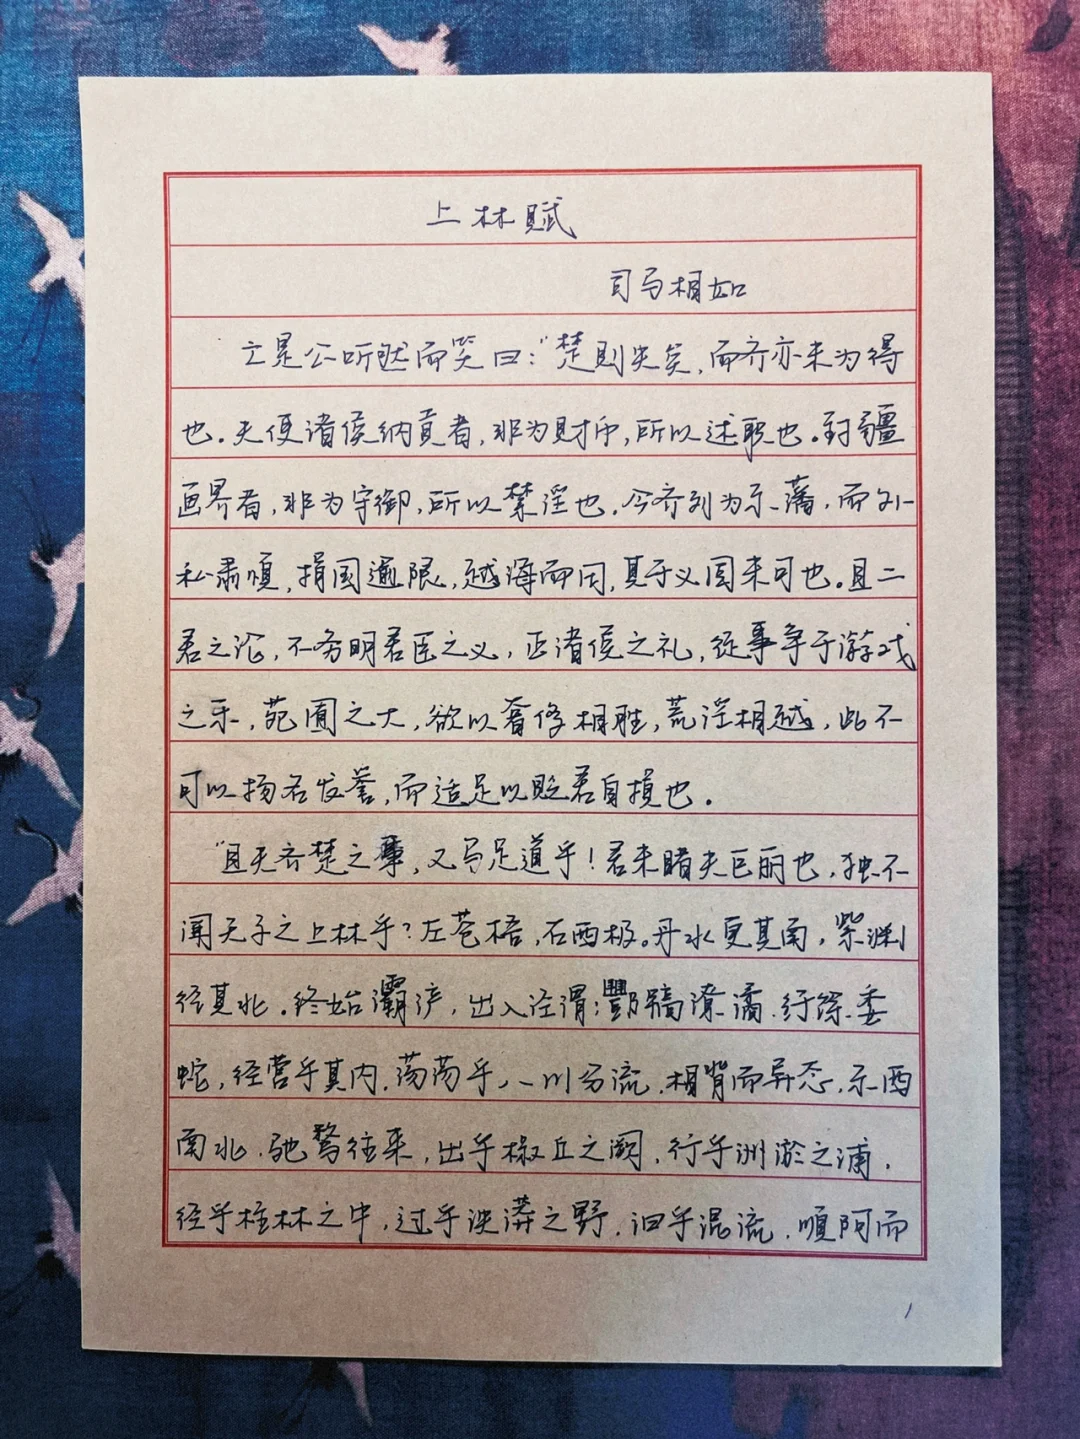 上林赋
司马相如
亡是公听然而笑曰:“楚则失矣,而齐亦未为得
也.夫使诸侯纳贡者,非为财币,所以述职也.封疆
画界者,非为守御,所以禁淫也.今齐列为东藩,而外
私肃慎,捐国逾限,越海而田,其于义固未可也.且二
君之论,不务明君臣之义,正诸侯之礼,徒事争于游戏
之乐,苑囿之大,欲以奢侈相胜,荒淫相越,此不
可以扬名发誉,而适足以贬君自损也.
“且夫齐楚之事,又乌足道乎!君未睹夫巨丽也,独不
闻天子之上林乎?左苍梧,右西极.丹水更其南,紫渊
径其北.终始灞浐,出入泾渭;酆镐潦潏.纡馀委
蛇,经营乎其内.荡荡乎,八川分流.相背而异态.东西
南北.驰骛往来,出乎椒丘之阙,行乎洲淤之浦.
经乎桂林之中,过乎泱漭之野.汩乎混流.顺阿而
1